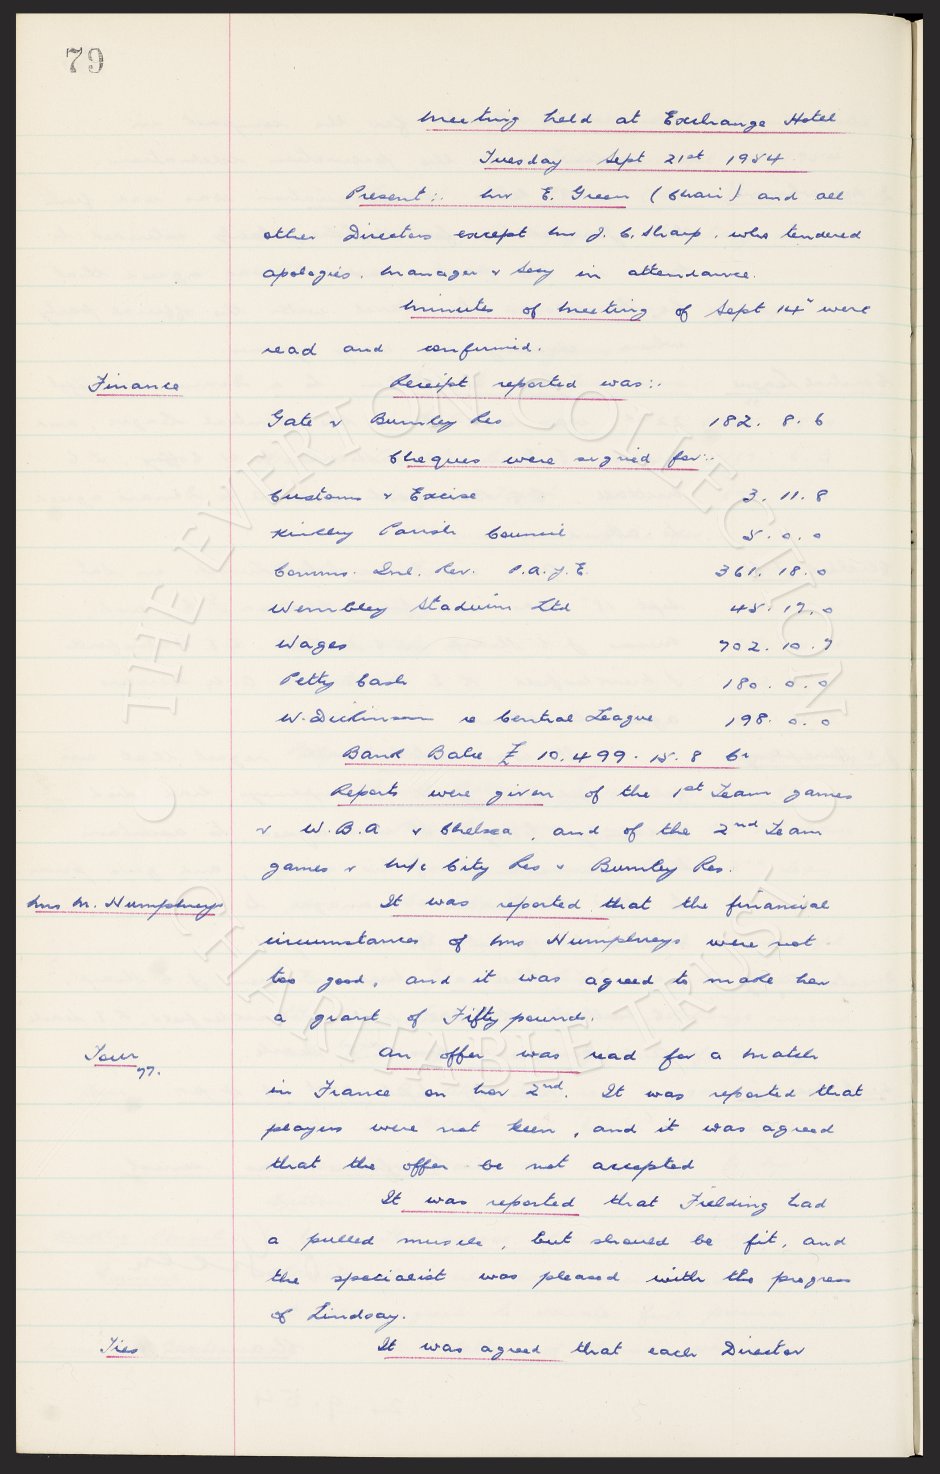 79
Meeting held at Exchange Hotel
Tuesday Sept 21st 1954.
Present:. Mr E. Green (Chair) and all
other Directors except Mr J. C. Sharp. who tendered
apologies. Manager & Secy in attendance.
Minutes of Meeting of Sept 14" were
read and confirmed.
Finance
Receipt reported was:.
Gate v Burnley Res 182. 8. 6
Cheques were signed for:.
Customs & Excise 3. 11. 8
Kirkby Parish Council 5. 0. 0
Comms. Inl. Rev. P.A.Y.E. 361. 18. 0
Wembley Stadium Ltd 45. 17. 0
Wages 702. 10. 7
Petty Cash 180. 0. 0
W. Dickinson re Central League 198. 0. 0
Bank Balce £10.499. 15. 8 Cr
Reports were given of the 1st Team games
v W.B.A v Chelsea, and of the 2nd Team
games v M/c City Res v Burnley Res.
Mrs M. Humphreys
It was reported that the financial
circumstances of Mrs Humphreys were not
too good, and it was agreed to make her
a grant of Fifty pounds.
Tour
77.
An offer was read for a match
in France on Nov 2nd. It was reported that
players were not keen, and it was agreed
that the offer be not accepted
It was reported that Fielding had
a pulled muscle, but should be fit, and
the specialist was pleased with the progress
of Lindsay.
Ties
It was agreed that each Director
© THE EVERTON COLLECTION
CHARITABLE TRUST